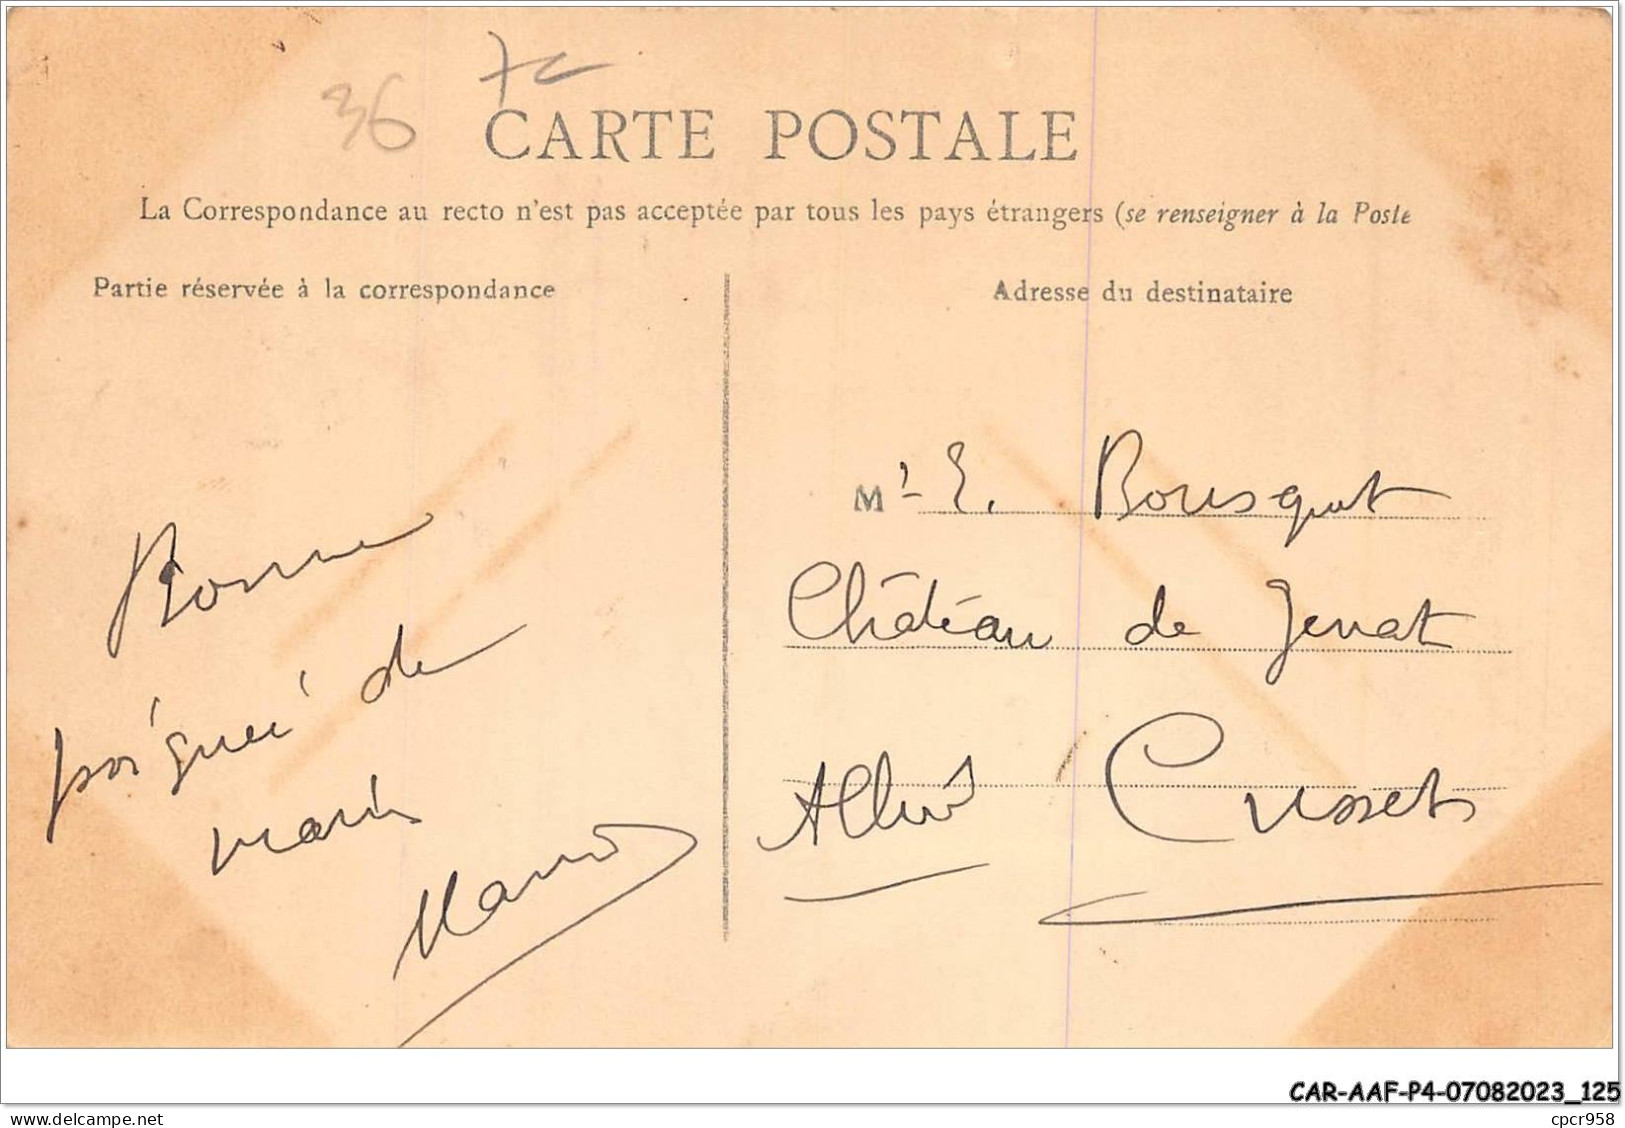 36
CARTE POSTALE
La Correspondance au recto n'est pas acceptée par tous les pays étrangers (se renseigner à la Poste
Partie réservée à la correspondance
Adresse du destinataire
Bonne
poignée de
main
Mr E. Bousquet
Château de Jenat
Cusset
Allier
CAR-AAF-P4-07082023_125
https://www.delcampe.net
cpcr958